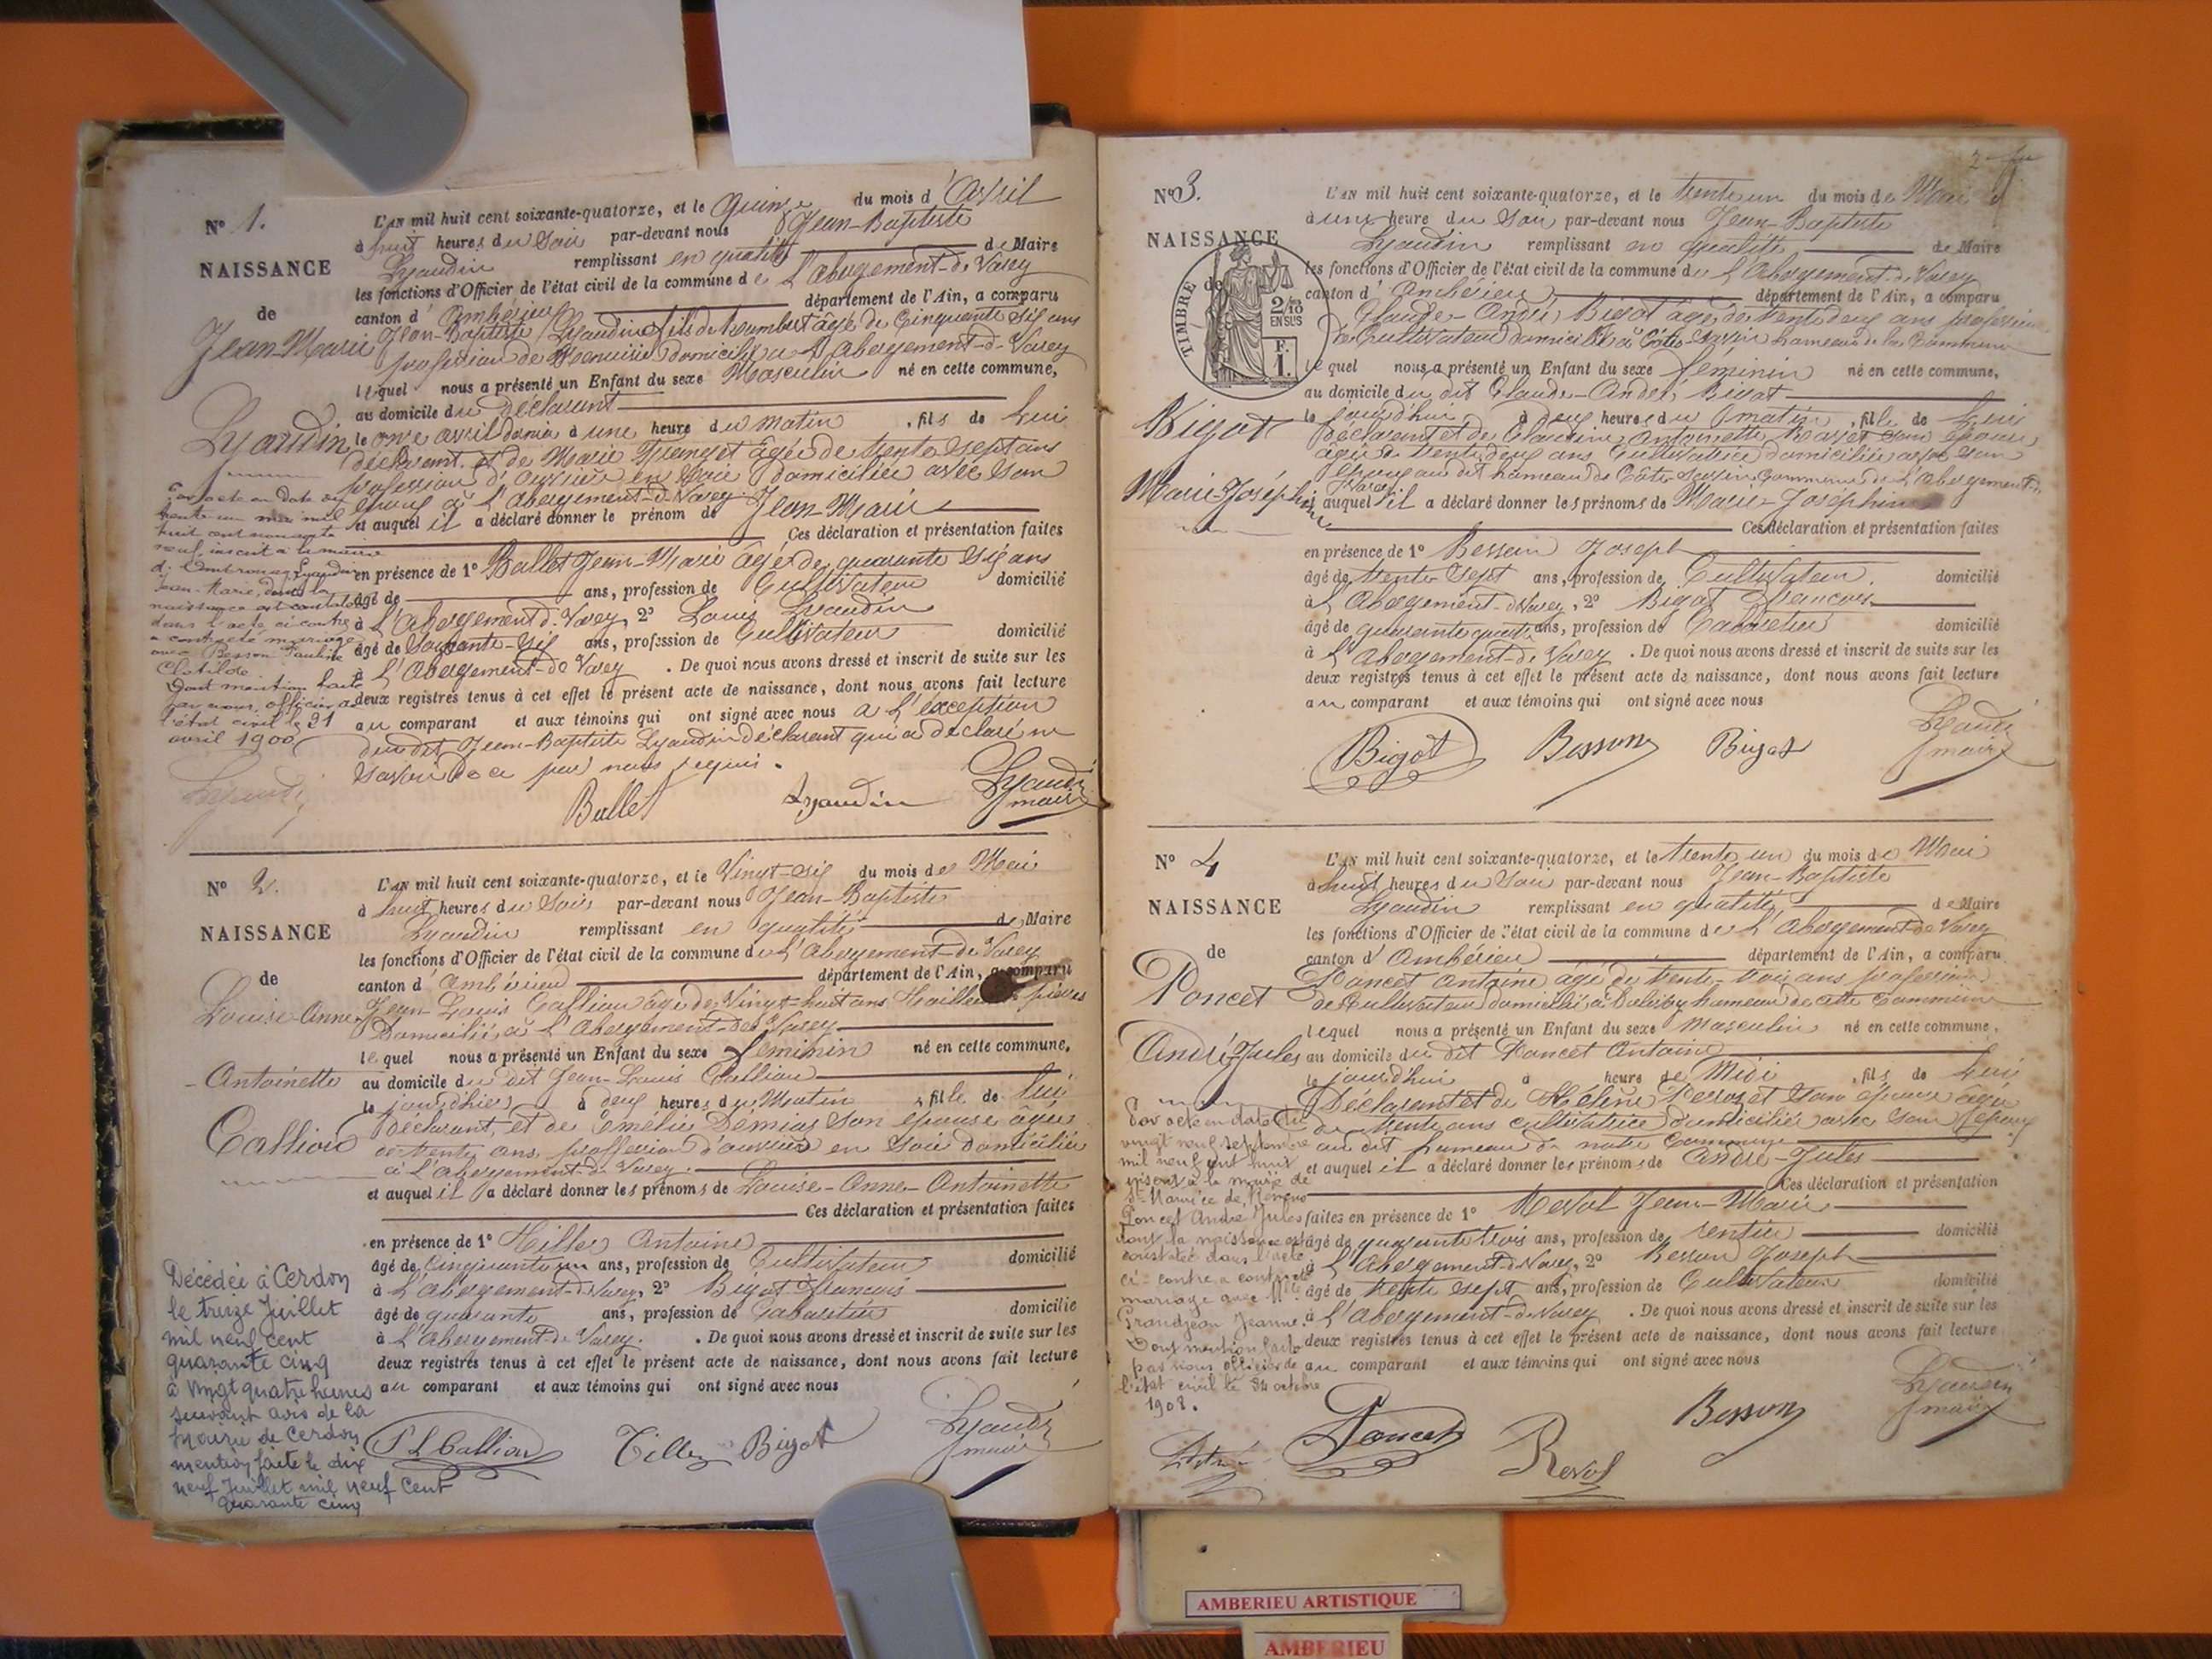 N° 1.
NAISSANCE
de
Jean-Marie
Lyaudin
L'AN mil huit cent soixante-quatorze, et le Quinze du mois d'Avril
à huit heures du Soir par-devant nous Jean-Baptiste
Lyaudin remplissant en qualité de Maire
les fonctions d'Officier de l'état civil de la commune de L'Abergement-de Varey
canton d'Ambérieu département de l'Ain, a comparu
Jean-Baptiste Lyaudin fils de Humbert âgé de Cinquante six ans
profession de Menuisier domicilié à L'Abergement-de-Varey
lequel nous a présenté un Enfant du sexe Masculin né en cette commune,
au domicile du Déclarant
le onze avril dernier à une heure du matin , fils de Lui
déclarant, et de Marie âgée de trente sept ans
profession d'ouvrière en Soie domiciliée avec son
époux à L'Abergement-de-Varey
et auquel il a déclaré donner le prénom de Jean-Marie
Ces déclaration et présentation faites
en présence de 1° Ballet Jean-Marie âgé de quarante six ans
âgé de ans, profession de Cultivateur domicilié
à L'Abergement-de-Varey, 2° Louis Lyaudin
âgé de Soixante-Six ans, profession de Cultivateur domicilié
à L'Abergement-de Varey . De quoi nous avons dressé et inscrit de suite sur les
deux registres tenus à cet effet le présent acte de naissance, dont nous avons fait lecture
au comparant et aux témoins qui ont signé avec nous à L'exception
du dit Jean-Baptiste Lyaudin déclarant qui a déclaré ne
savoir de ce par nous requis.
Ballet Lyaudin Lyaudin
maire
Par acte en date du
trente un mai mil
huit cent nonante
neuf, inscrit à la mairie
d'Ambronay Lyaudin
Jean-Marie, dont la
naissance est constatée
dans l'acte ci contre
a contracté mariage
avec Besson Pauline
Clotilde
Dont mention faite
par nous, officier de
l'état civil le 21
avril 1900
N° 2.
NAISSANCE
de
Louise-Anne-
-Antoinette
Callion
L'AN mil huit cent soixante-quatorze, et le Vingt-six du mois de Mai
à huit heures du Soir par-devant nous Jean-Baptiste
Lyaudin remplissant en qualité de Maire
les fonctions d'Officier de l'état civil de la commune de L'Abergement-de Varey
canton d'Ambérieu département de l'Ain, a comparu
Jean-Louis Callion âgé de Vingt-huit ans tailleur pierres
Domicilié à L'Abergement-de Varey
lequel nous a présenté un Enfant du sexe féminin né en cette commune,
au domicile du dit Jean-Louis Callion
le jourd'hier à deux heures du Matin , fille de lui
Déclarant, et de Emélie Démias son épouse âgée
de trente ans, proffession d'ouvrière en Soie domiciliée
à L'abergement-de Varey.
et auquel il a déclaré donner les prénoms de Louise-Anne-Antoinette
Ces déclaration et présentation faites
en présence de 1° Tiller Antoine
âgé de Cinquante un ans, profession de Cultivateur domicilié
à L'Abergement-de Varey, 2° Bigot François
âgé de quarante ans, profession de Cabaretier domicilié
à L'Abergement-de Varey. . De quoi nous avons dressé et inscrit de suite sur les
deux registres tenus à cet effet le présent acte de naissance, dont nous avons fait lecture
au comparant et aux témoins qui ont signé avec nous
J L Callion Tiller Bigot Lyaudin
maire
Décédée à Cerdon
le treize Juillet
mil neuf cent
quarante cinq
à vingt quatre heures
suivant avis de la
mairie de Cerdon
mention faite le dix
neuf Juillet mil neuf cent
quarante cinq
N° 3.
NAISSANCE
de
TIMBRE
2/10
EN SUS
F.
1.
Bigot
Marie-Joséphine
L'AN mil huit cent soixante-quatorze, et le trente un du mois de Mai
à une heure du Soir par-devant nous Jean-Baptiste
Lyaudin remplissant en qualité de Maire
les fonctions d'Officier de l'état civil de la commune de L'Abergement-de Varey
canton d'Ambérieu département de l'Ain, a comparu
Claude-André Bigot âgé de trente deux ans profession
de Cultivateur domicilié à Côte-Savin hameau de la Commune
lequel nous a présenté un Enfant du sexe féminin né en cette commune,
au domicile du dit Claude-André Bigot
le jourd'hui à deux heures du matin , fille de Lui
déclarant et de Claudine Antoinette son épouse
âgée de trente deux ans Cultivatrice domiciliée avec son
époux au dit hameau de Côte-Savin Commune de L'Abergement-de
Varey
auquel il a déclaré donner les prénoms de Marie-Joséphine
Ces déclaration et présentation faites
en présence de 1° Besson Joseph
âgé de trente sept ans, profession de Cultivateur. domicilié
à L'Abergement-de Varey, 2° Bigot François
âgé de quarante quatre ans, profession de Cabaretier domicilié
à L'Abergement-de Varey . De quoi nous avons dressé et inscrit de suite sur les
deux registres tenus à cet effet le présent acte de naissance, dont nous avons fait lecture
au comparant et aux témoins qui ont signé avec nous
Bigot Besson Bigot Lyaudin
maire
N° 4
NAISSANCE
de
Poncet
André-Jules
L'AN mil huit cent soixante-quatorze, et le trente un du mois de Mai
à huit heures du Soir par-devant nous Jean-Baptiste
Lyaudin remplissant en qualité de Maire
les fonctions d'Officier de l'état civil de la commune de L'Abergement-de Varey
canton d'Ambérieu département de l'Ain, a comparu
Poncet Antoine âgé de trente-trois ans profession
de Cultivateur domicilié à hameau de cette Commune
lequel nous a présenté un Enfant du sexe Masculin né en cette commune,
au domicile du dit Poncet Antoine
le jourd'hui à heure de Midi , fils de Lui
Déclarant et de Hélène son épouse âgée
de trente ans cultivatrice domiciliée avec son époux
au dit hameau de notre Commune
et auquel il a déclaré donner les prénoms de André-Jules
Ces déclaration et présentation
faites en présence de 1° Revol Jean-Marie
âgé de quarante trois ans, profession de rentier domicilié
à L'Abergement-de Varey, 2° Besson Joseph
âgé de trente sept ans, profession de Cultivateur domicilié
à L'Abergement-de Varey . De quoi nous avons dressé et inscrit de suite sur les
deux registres tenus à cet effet le présent acte de naissance, dont nous avons fait lecture
au comparant et aux témoins qui ont signé avec nous
Poncet Revol Besson Lyaudin
maire
Par acte en date du
vingt neuf septembre
mil neuf cent huit
inscrit à la mairie de
St-Maurice de Rémens
Poncet André Jules
dont la naissance est
constatée dans l'acte
ci-contre a contracté
mariage avec Mlle
Grandjean Jeanne.
Dont mention faite
par nous officier de
l'état civil le octobre
1908.
AMBERIEU ARTISTIQUE
AMBERIEU